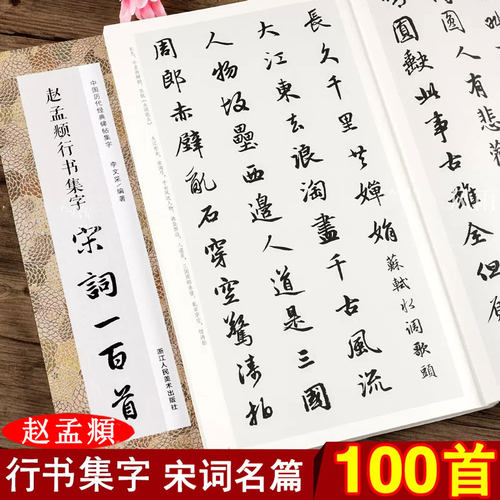 中国历代经典碑帖集字
赵孟頫行书集字
宋詞一百首
李文采·编著
浙江人民美术出版社
圓人有悲
圓缺此事古難全但
長久千里共嬋娟
蘇軾水调歌頭
大江東去浪淘盡千古風流
人物故壘西邊人道是三國
周郎赤壁亂石穿空驚濤拍
赵孟頫
行书集字 宋词名篇 100首